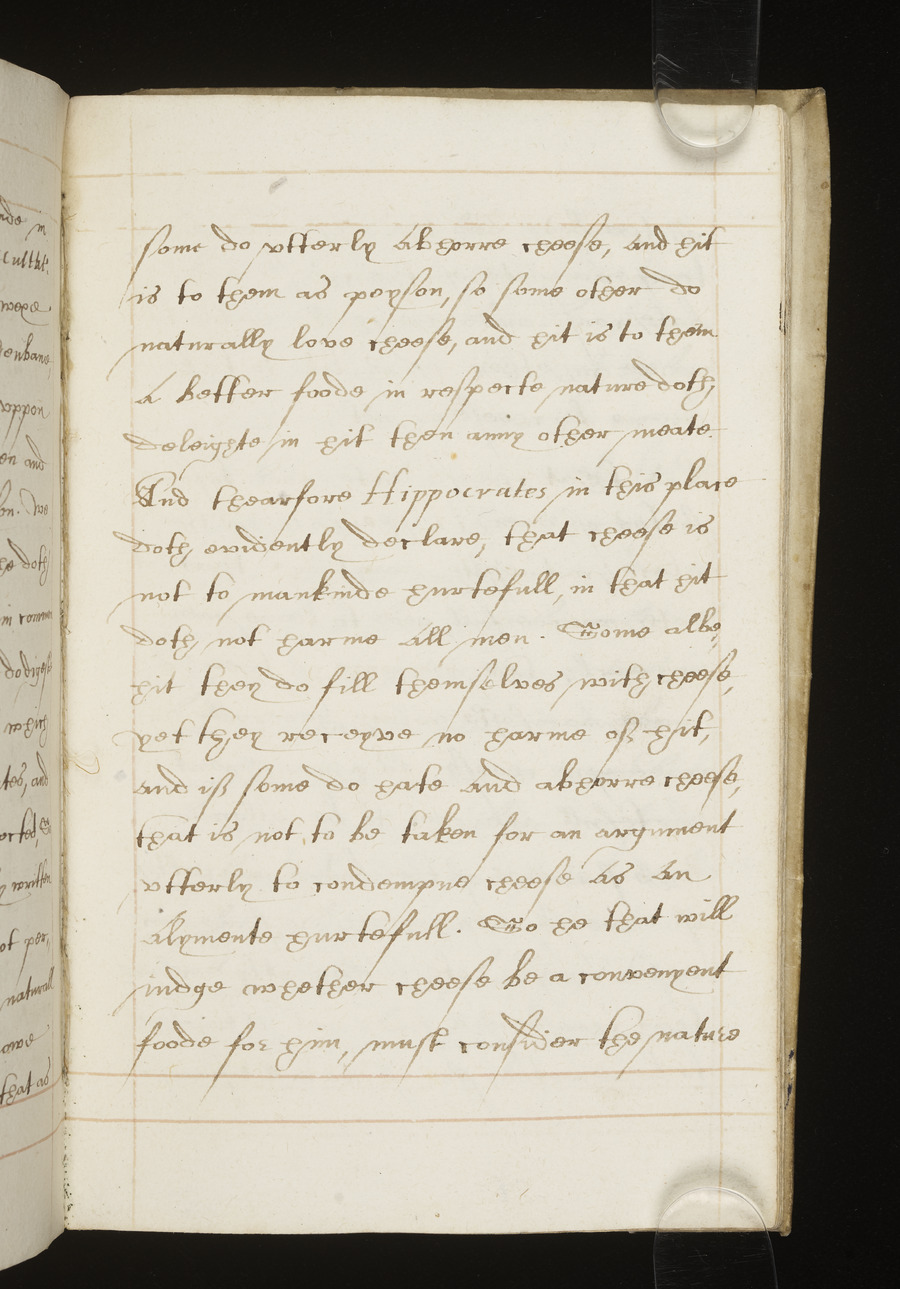 ade in
wexe
henbane
vppon
en and
on. we
he doth
in common
do digest
which
tes, and
octed,
y written
ot per,
naturall
owe
that as
some do vtterly abhorre cheese, and hit
is to them as poyson, so some other do
naturally love cheese, and hit is to them
A better foode in respecte nature doth,
deleighte in hit then anny other meate.
And thearfore Hippocrates in this place
doth evidently declare, that cheese is
not to mankinde hurtefull, in that hit
doth not harme all men. Some albe,
hit they do fill themselves with cheese,
yet they receyve no harme off hit,
and iff some do hate and abhorre cheese,
that is not to be taken for an argument
vtterly to condempne cheese as an
Alymente hurtefull. So he that will
iudge whether cheese be a convenyent
foode for him, must consider the nature